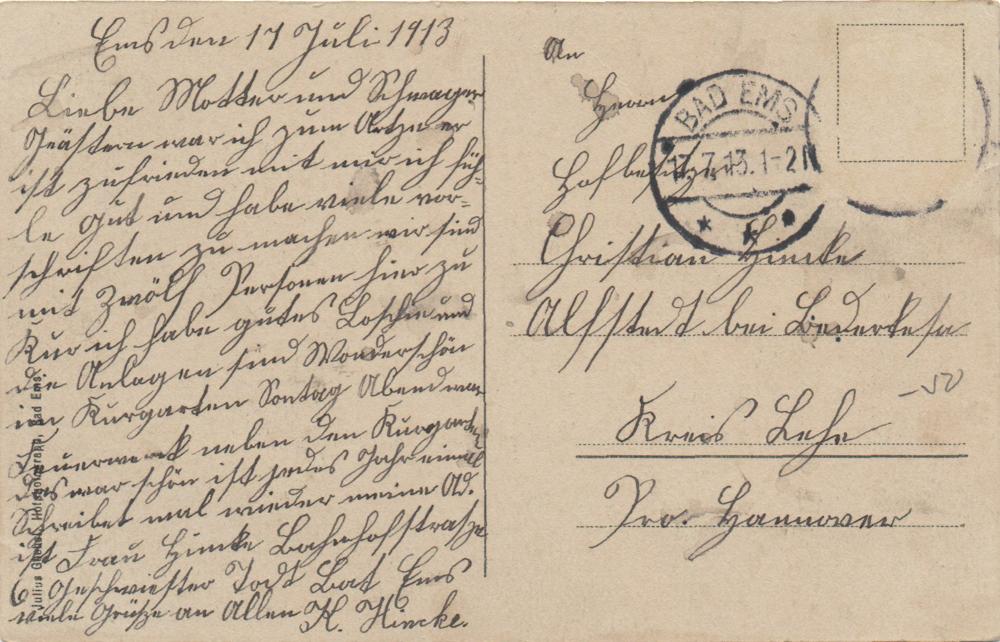 Ems den 17 Juli 1913
Liebe Motter und Schwager
Geästern war ich zum Artze er
ist zufrieden mit mir ich füh-
le gut und habe viele vor-
schriften zu machen wir sind
mit Zwölf Personen hier zu
Kur ich habe gutes Loschie und
die Anlagen sind Wonderschön
im Kurgarten Sontag Abend war
Feuerwerk neben den Kurgarten
das war schön ist jedes Jahr einmal
Schreibet mal wieder meine Ad.
ist Frau Hincke Bahnhofstrasze
6 Geschwiester Todt Bat Ems
viele Grüsze an Allen K. Hincke.
Julius Hofphotograph, Bad Ems.
An
Herrn
Hofbesitzer
Christian Hincke
Alfstedt bei Bederkesa
Kreis Lehe
Pro. Hannover
BAD EMS
17.7.13.1-2N
* *
-50